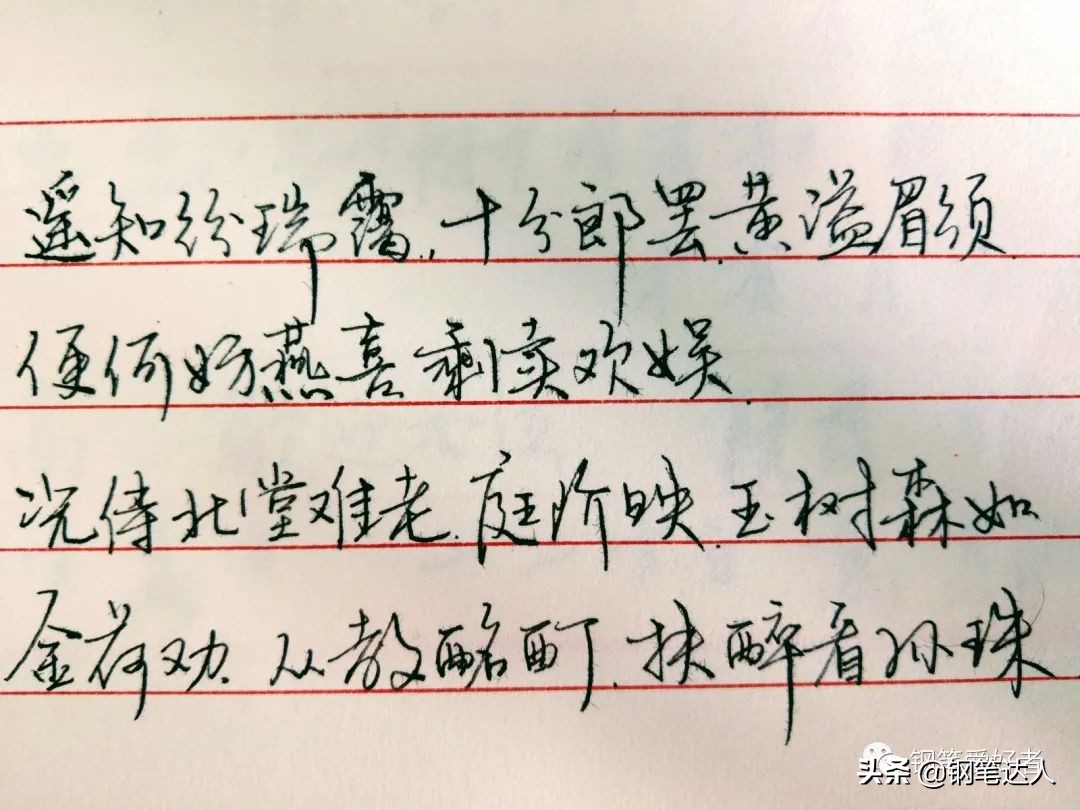 遥知纷瑞霭,十分郎罢.黄溢眉须.
便何妨燕喜剩续欢娱.
况侍北堂难老.庭阶映.玉树森如
金荷劝.从教酩酊.扶醉看孙珠
钢笔爱好者
头条@钢笔达人